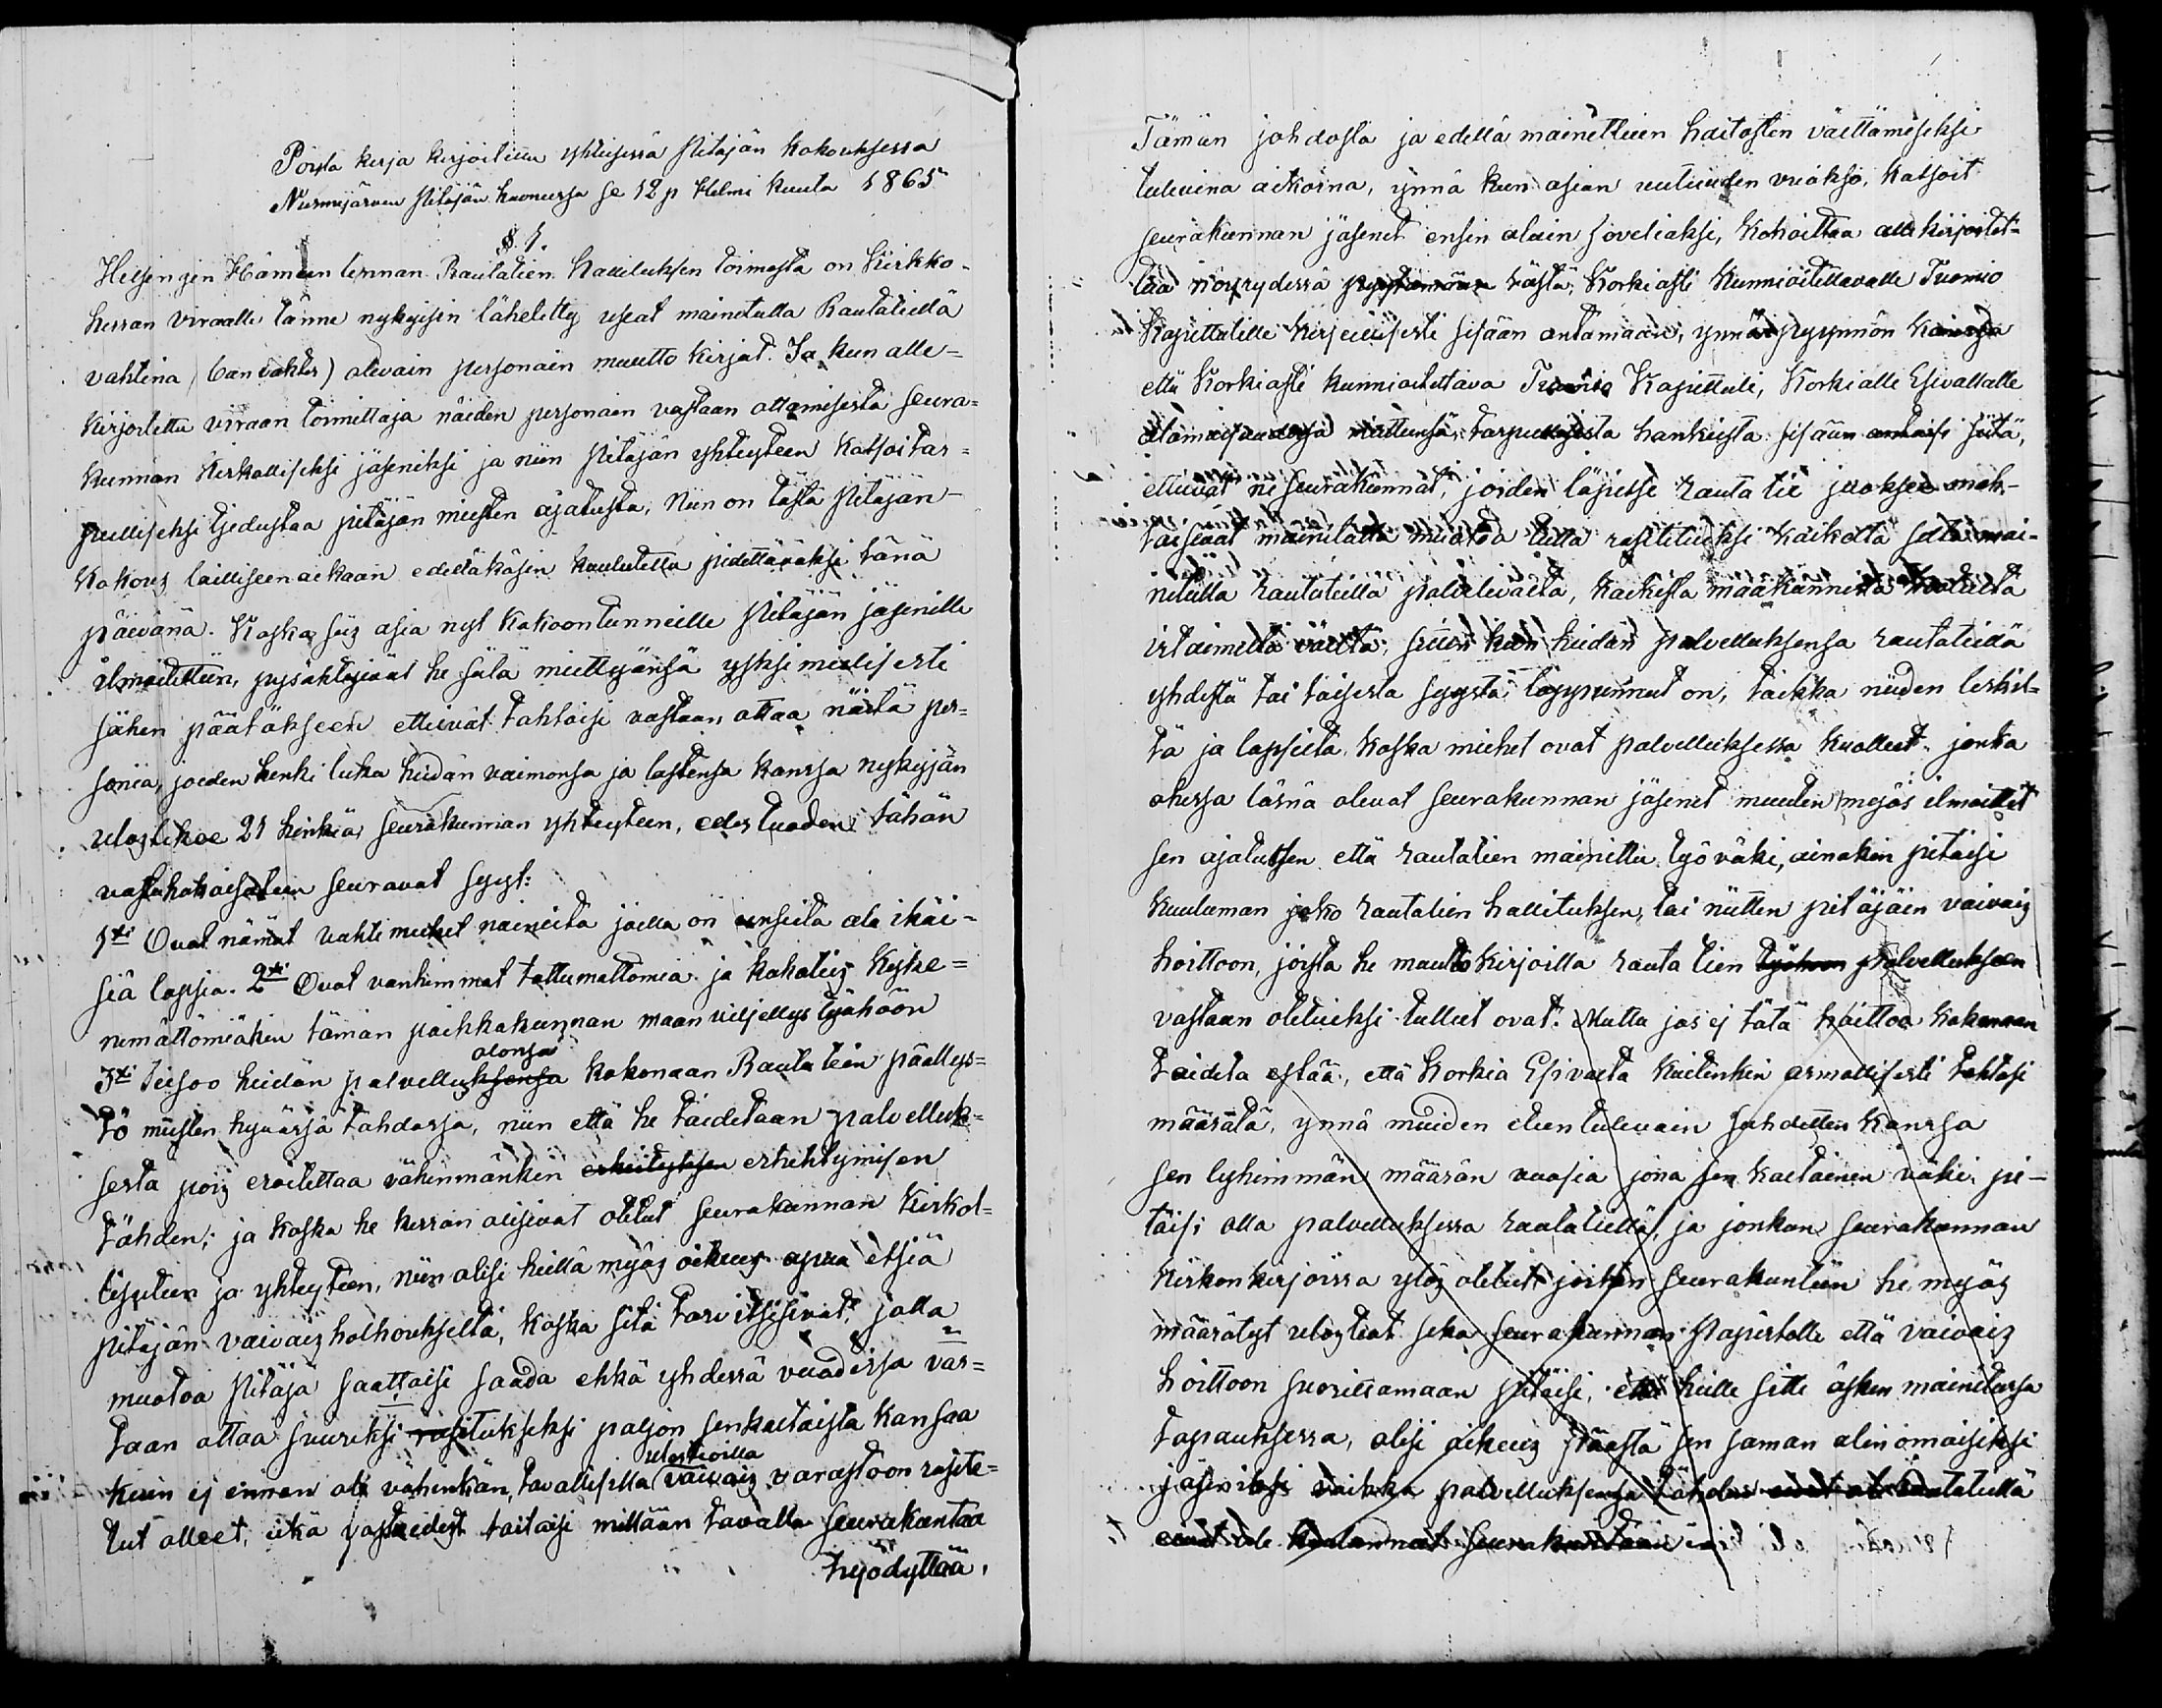 Pöytä kirja kirjoitettu yhteisessä Pitäjän kokouksessa
Nurmijärven Pitäjän huoneessa se 12 p Helmi kuuta 1865
§. 1.
Helsingin Hämeen linnan Rautatien hallituksen toimesta on Kirkko-
herran viraalle tänne nykyisin lähetetty useat mainitulla Rautatiellä
vahtina (banvakter) olevain personain muutto kirjat. Ja kun alle-
kirjoitettu viraan toimittaja näiden personain vastaan ottamisesta seura-
kunnan kirkolliseksi jäseniksi ja niin Pitäjän yhteyteen katsoi tar-
peelliseksi tjedustaa pitäjän miesten ajatusta, Niin on tästä Pitäjän-
Kokous lailliseen aikaan edeltäkäsin kuulutettu pidettäväksi tänä
päivänä. Koska siis asia nyt kokoontunneille Pitäjän jäsenille
ilmoitettiin, pysähtyivät he siitä miettyänsä yksimielisesti
siihen päätökseen etteivät tahtoisi vastaan ottaa näitä per-
sonia, joiden henki luku heidän vaimonsa ja lastensa kanssa nykyjän
ulostekee 21 henkiä, seurakunnan yhteyteen, edes tuoden tähän
vastahakoisuteen seuravat syyt:
1ksi Ovat nämät vahti miehet naineita joilla on useita ala ikäi-
siä lapsia. 2ksi Ovat vanhimmat tottumattomia ja kukaties kyke-
nemättömiäkin tämän paikkakunnan maan viljellys työhöön
olonsa
3ksi Seisoo heidän palvelluksensa kokonaan Rautatien päällys-
tö miesten hyvässä tahdossa, niin että he taidetaan palvelluk-
sesta pois eroitettaa vähinmänkin erhetyksen erhehtymisen
tähden; ja koska he kerran olisivat otetut seurakunnan kirkol-
lisuteen ja yhteyteen, niin olisi heillä myös oikeus apua etsiä
pitäjän vaivais holhoukselta, koska sitä tarvitsisivat, jolla
muotoa Pitäjä saattaisi saada ehkä yhdessä vuodessa vas-
taan ottaa suureksi rasitukseksi paljon senkaltaista kansaa
ulosteoilla
kuin ej ennen ole vähenkän, tavallisilla vaivais varastoon rasite-
tut olleet, eikä vastedest taitaisi millään tavalla seurakuntaa
hyödyttää.
Tämän johdosta ja edellä mainittuin haitosten välttämiseksi
tulevina aikoina, ynnä kun asian uutuuden vuoksi, katsoit
seurakunnan jäsenet ensin olevan soveliaksi, kohoittaa allekirjoitet-
tua nöyrydessä pyytämään tästä, Korkiasti kunnioitettavalle Tuomio
Kapittulille kirjallisesti sisään antamaan, ynnä pyynnön kanssa
että Korkiasti kunnioitettava Tuomio Kapittuli, Korkialle Esivallalle
etteivät ne seurakunnat, joiden läpitse rauta tie juoksee mah-
taisivat mainitulla muotoa tulla rasitetuiksi kaikelta selta mai-
nitulla rautatiellä palvelevaista, kaikista maakunnista kootusta
irtaimelta väeltä, siitten kun heidän palvelluksensa rautatiellä
yhdestä tai toisesta syystä loppunnut on, taikka niiden leskil-
tä ja lapsilta, koska miehet ovat palvelluksessa kuolleet. jonka
ohessa läsnä olevat seurakunnan jäsenet muuten myös ilmoittit
sen ajatuksen että rautatien mainittu työväki, ainakin pitäisi
kuuluman joko rautatien hallituksen, tai niitten pitäjäin vaivais
hoittoon, joista he muutto kirjoilla rauta tien työhoon palvelluksen
vastaan otetuiksi tulleet ovat. Mutta jos ej tätä haittoa kokonaan
taideta estää, että Korkia Esivalta kuitenkin armollisesti tahtosi
määrätä, ynnä muiden eteentulevain suhdetten kanssa
sen lyhimmän määrän vuosia jona sen kaltainen väki pi-
täisi olla palvelluksessa rautatiellä, ja jonkun seurakunnan
kirkonkirjoissa ylös otetut joitten seurakuntiin he myös
määrätyt ulosteot seka seurakunnan Papistolle että vaivais
hoittoon suorittamaan pitäisi, että heille sitte äsken mainitussa
tapauksessa, olisi oikeus päästä sen saman alinomaiseksi
jäseniksi vaikka palvelluksensa tähden eivät ole rautatiellä
eivät ole kuulunnat seurakuntaan